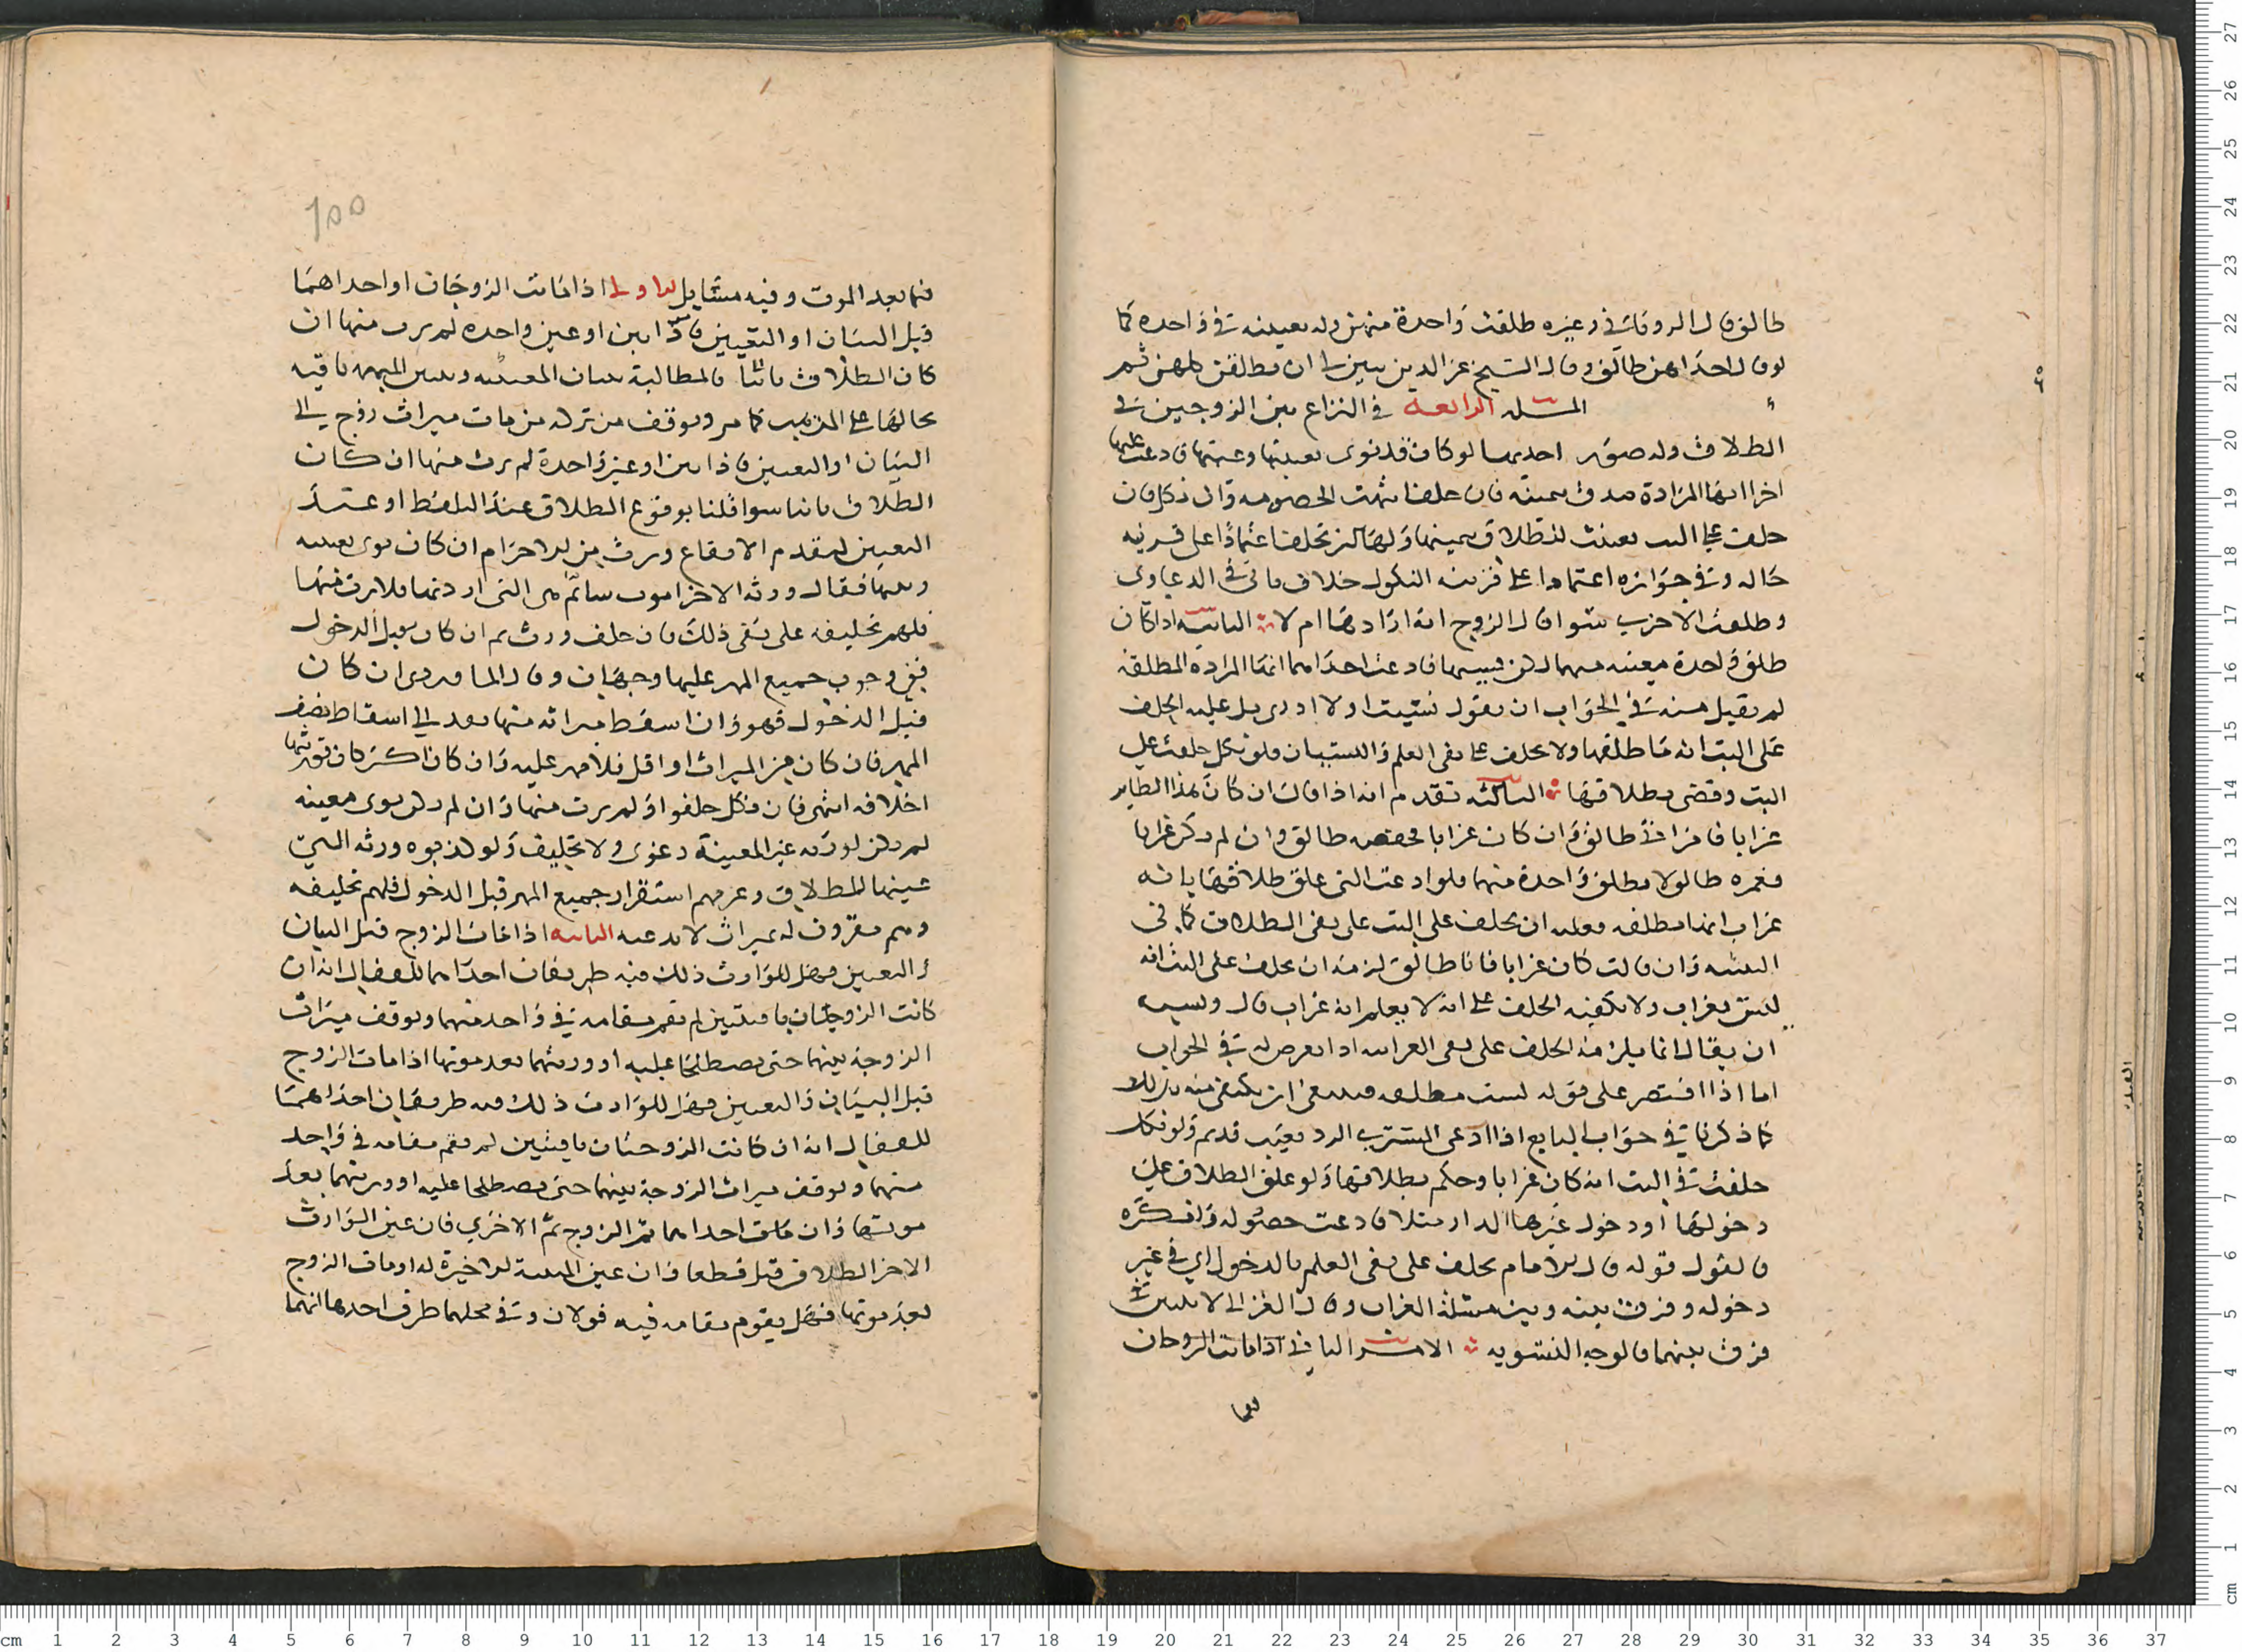 طالق قال الروياني وغيره طلقت واحدة منهن وله تعيينه في واحدة كما
لو قال احداهن طالق وقال الشيخ عز الدين يتبين لي ان يطلقن كلهن ثم
المسله الرابعة في النزاع بين الزوجين في
الطلاق وله صور احديها لو كان قد نوى بعينها وعينها فادعت عليها
اخرا انها المرادة صدق بيمينه فان حلف انتهت الخصومه وان نكل فان
حلفت على البت تعينت للطلاق بيمينها ولها ان تحلف اعتمادا على قرينه
حاله وفي جوازه اعتمادا على قرينه النكول خلاف ياتي في الدعاوى
وطلقت الاخرى سوا قال الزوج انه ارادها ام لا الثانيه اذا كان
طلق واحدة معينه منهما ولم يبينها فادعت احداهما انها المرادة المطلقة
لم يقبل منه في الجواب ان يقول نسيت او لا ادري بل عليه الحلف
على البت انه ما طلقها ولا يحلف على نفي العلم والنسيان فلو نكل حلفت على
البت وقضى بطلاقها الثالثه تقدم انه اذا قال ان كان هذا الطاير
غرابا فامراتي طالق وان كان غرابا فحفصه طالق وان لم يكن غرابا
فعمره طالق لا يطلق واحدة منهما فلو ادعت التي علق طلاقها بانه
غراب انها مطلقه فعليه ان يحلف على البت على نفي الطلاق كما في
النسيه وان قالت كان غرابا فانا طالق لزمه ان يحلف على البت انه
ليس بغراب ولا يكفيه الحلف على انه لا يعلم انه غراب قال ويشبه
ان يقال انما يلزمه الحلف على نفي الغرابيه اذا تعرض له في الجواب
اما اذا اقتصر على قوله لست مطلقه فينبغي ان يكتفى منه بذلك
كما ذكرنا في جواب البايع اذا ادعى المشتري الرد بعيب قديم ولو نكل
حلفت في البت انه كان غرابا وحكم بطلاقها ولو علق الطلاق على
دخولها او دخول غيرها الدار مثلا فادعت حصوله وانكره
فالقول قوله قال الامام يحلف على نفي العلم بالدخول اي في غير
دخوله وفرق بينه وبين مسئلة الغراب وقال الغزالي لا يتبين لي
فرق بينهما فالوجه التسويه الامر الثاني اذا ماتت الزوجتان
فيما
١٥٥
فيما بعد الموت وفيه مسايل الاولى اذا ماتت الزوجتان او احداهما
قبل البيان او التعيين فاذا بين او عين واحدة لم يرث منها ان
كان الطلاق باينا فالمطالبة ببيان المعينه وتعيين المبهمه باقيه
بحالها على المذهب كما مر ويوقف من تركه من مات ميراث زوج الى
البيان او التعيين فاذا بين او عين واحدة لم يرث منها ان كان
الطلاق باينا سوا قلنا بوقوع الطلاق عند اللفظ او عند
التعيين لتقدم الايقاع ويرث من الاخرى ثم ان كان نوى معينه
وبينها فقال ورثه الاخرى هي التي اردتها فلا ترث منها
فلهم تحليفه على نفي ذلك فان حلف ورث ثم ان كان قبل الدخول
ففي وجوب جميع المهر عليها وجهان وقال الماوردي ان كان
قبل الدخول فهو وان اسقط ميراثه منها بعد الى اسقاط نصف
المهر فان كان من الميراث او اقل فلا مهر عليه وان كان اكثر كان قد ورثها
اخلافه انتهى فان نكل حلفوا ولم يرث منها وان لم يكن نوى معينه
لم يكن لورثه غير المعينة دعوى ولا تحليف ولو كذبوه ورثه التي
عينها للطلاق وغرضهم استقرار جميع المهر قبل الدخول فلهم تحليفه
وهم مقرون له بميراث لا يدعيه الثانيه اذا مات الزوج قبل البيان
والتعيين فهل للوارث ذلك فيه طريقان احداهما للقفال انه ان
كانت الزوجتان باقيتين لم يقم مقامه في واحد منهما ويوقف ميراث
الزوجة بينهما حتى يصطلحا عليه او ورثتهما بعد موتهما اذا مات الزوج
قبل البيان والتعيين فهل للوارث ذلك فيه طريقان احداهما
للقفال انه ان كانت الزوجتان باقيتين لم يقم مقامه في واحد
منهما ويوقف ميراث الزوجة بينهما حتى يصطلحا عليه او ورثتهما بعد
موتهما وان ماتت احداهما ثم الزوج ثم الاخرى فان عين الوارث
الاخرى للطلاق قبل قطعا وان عين الميته الاخيرة له او مات الزوج
بعد موتهما فهل يقوم مقامه فيه قولان وفي محلهما طرق احدها انهما